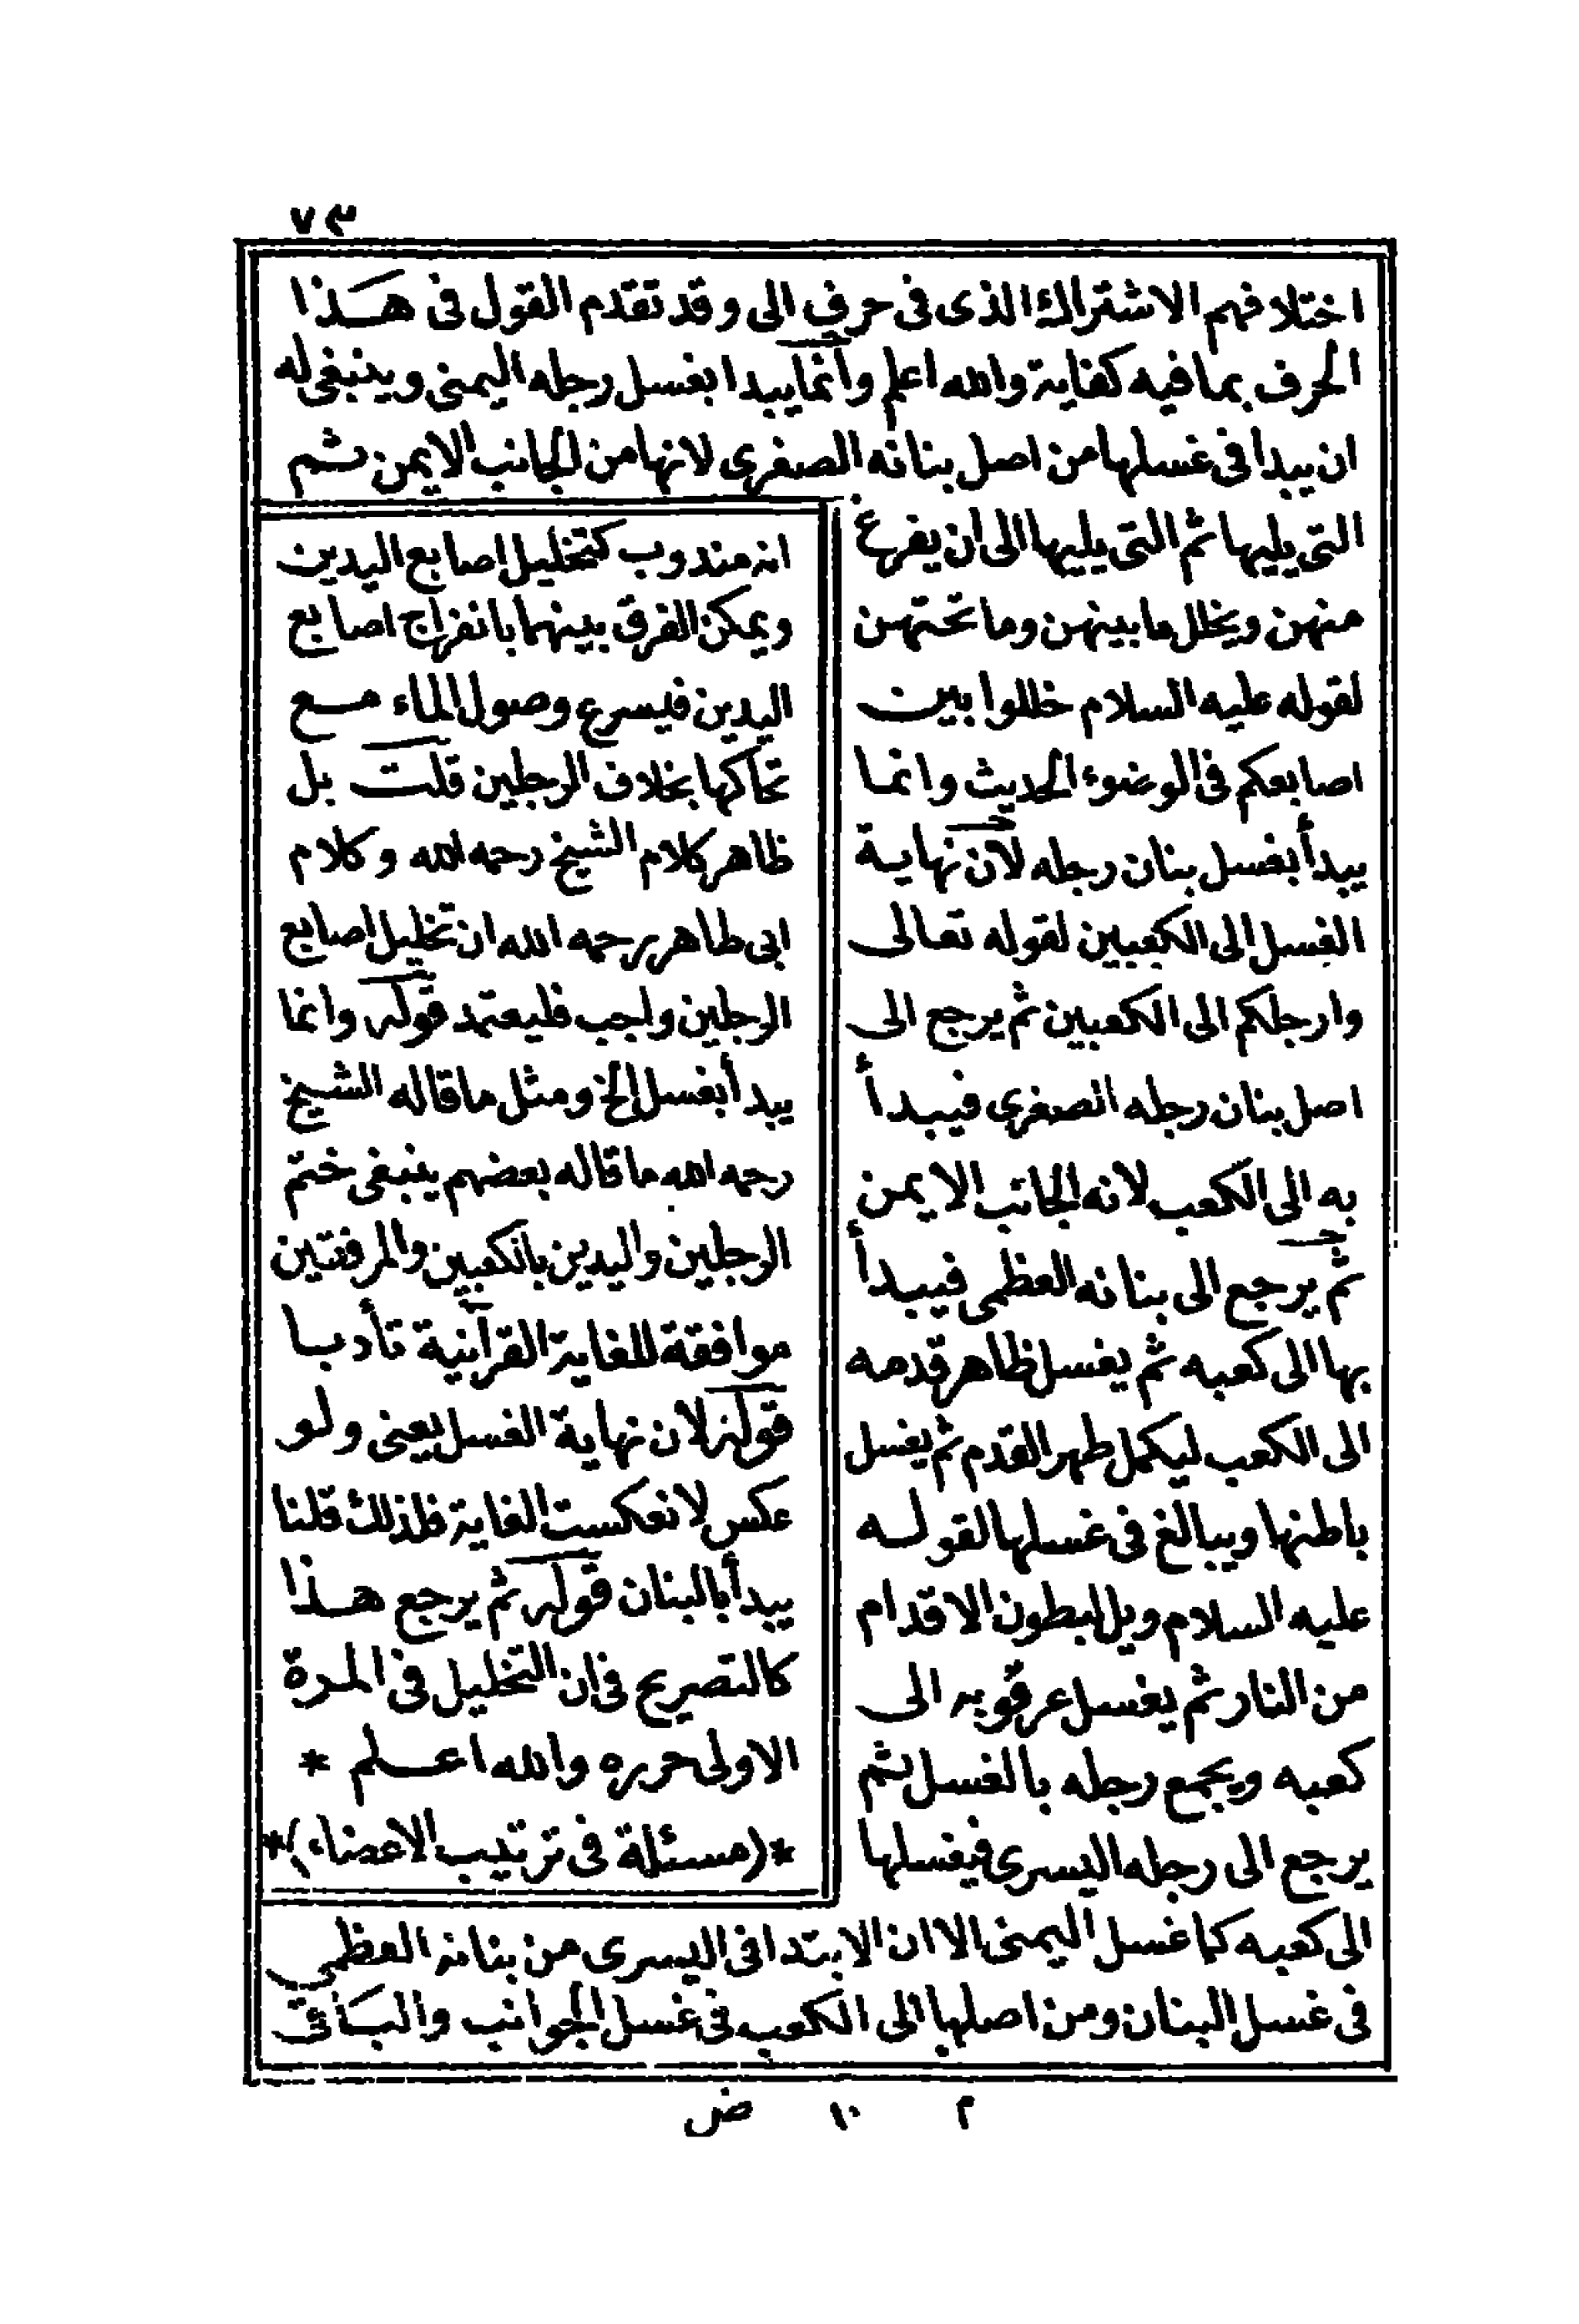 ٧٣
اختلافهم الاشتراك الذى فى حرف الى وقد تقدم القول فى هـذا
الحرف بما فيه كفاية والله اعلم وانما يبدا بغسل رجله اليمنى وينبغى له
ان يبدا فى غسلها من اصل بنانه الصغرى لانها من الجانب الايمن ثم
التى يليها ثم التى يليها الى ان يفرغ
منهن ويخلل ما بينهن وما تحتهن
لقوله عليه السلام خللوا بين
اصابعكم فى الوضوء الحديث وانما
يبدأ بغسل بنان رجله لان نهاية
الغسل الى الكعبين لقوله تعالى
وارجلكم الى الكعبين ثم يرجع الى
اصل بنان رجله الصغرى فيبدأ
به الى الكعب لانه الجانب الايمن
ثم يرجع الى بنانه العظمى فيبدأ
بها الى كعبه ثم يغسل ظاهر قدمه
الى الكعب ليكمل طهر القدم ثم يغسل
باطنها ويبالغ فى غسلها لقوله
عليه السلام ويل لبطون الاقدام
من النار ثم يغسل عرقوبه الى
كعبه ويجمع رجله بالغسل ثم
يرجع الى رجله اليسرى فيغسلها
انه مندوب كتخليل اصابع اليدين
ويمكن الفرق بينهما بانفراج اصابع
اليدين فيسرع وصول الماء مـع
تحاكها بخلاف الرجلين قلت بل
ظاهر كلام الشيخ رحمه الله وكلام
ابى طاهر رحمه الله ان تخليل اصابع
الرجلين واجب فليعتمد قوله وانما
يبدأ بغسل الخ ومثل ما قاله الشيخ
رحمه الله ما قاله بعضهم ينبغى ختم
الرجلين واليدين بالكعبين والمرفقين
موافقة للغاية القرآنية تأدبا
قوله لان نهاية الغسل يعنى ولو
عكس لانعكست الغاية فلذلك قلنا
يبدأ بالبنان قوله ثم يرجع هـذا
كالتصريح فى ان التخليل فى المرة
الاولى حرره والله اعـلم *
*(مسئلة فى ترتيب الاعضاء)*
الى كعبه كما غسل اليمنى الا ان الابتدا فى اليسرى من بنانه العظمى
فى غسل البنان ومن اصلها الى الكعب فى غسل الجوانب والبـاقى
م ١٠ ض